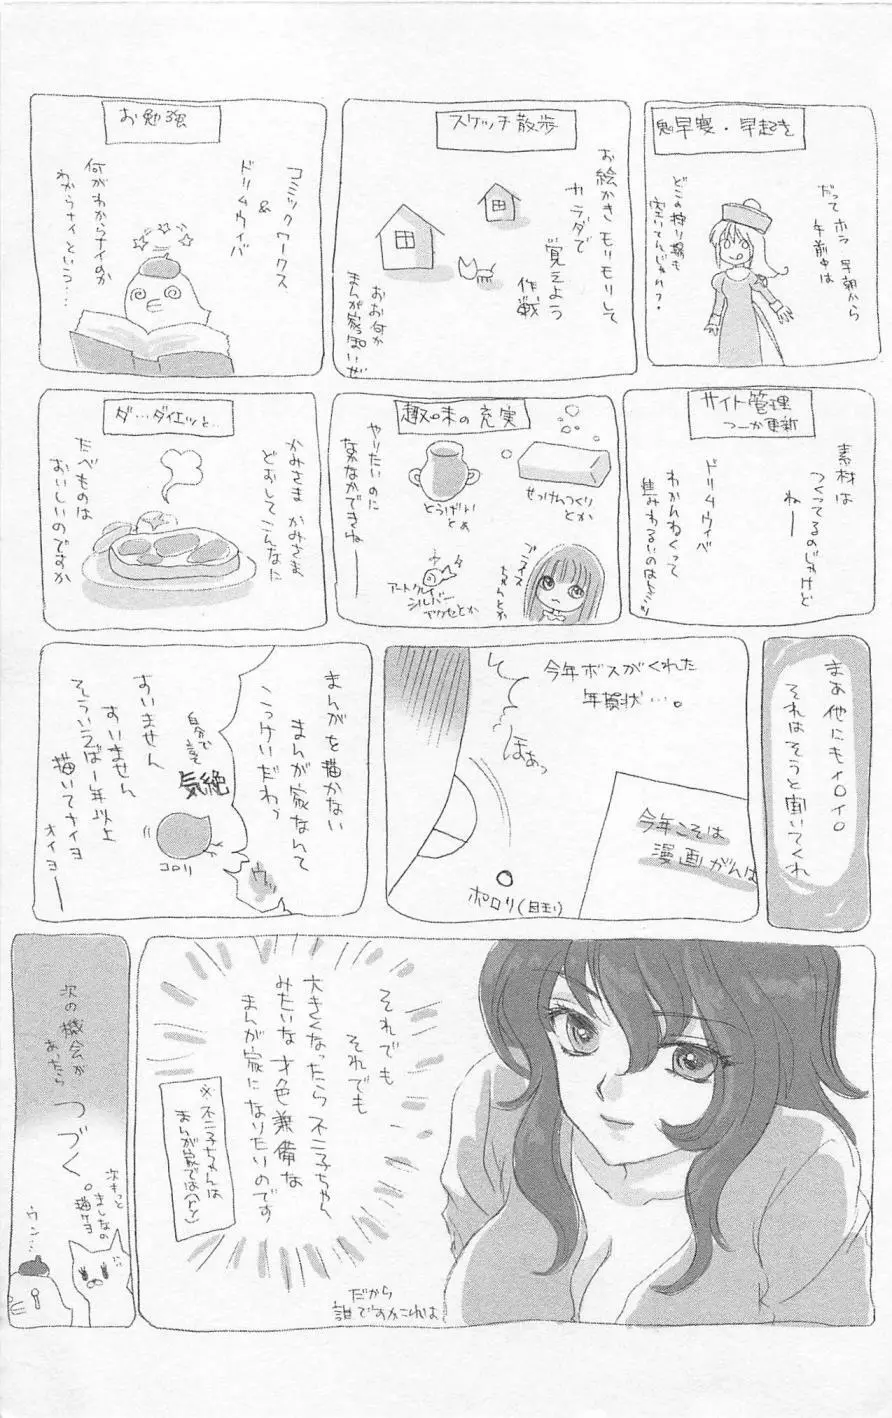 早寝・早起き
だって ホラ 早朝から
午前中は
どこの狩り場も
空いてんじゃれ?・
スケッチ散歩
お絵かき モリモリして
カラダで
覚えよう
作戦
おお何か
まんが家っぽいぜ
お勉強
コミックワークス
&
ドリムウィバ
何がわからナイのか
わからナイという…
サイト管理
つーか更新
素材は
つくってるのじゃけど
ねー
ドリムウィバ
わかんねくって
趣味の充実
とうげいとか
せっけんつくり
とか
やりたいのに
なかなかできねー
アートクレイ
シルバー
アクセとか
ダ…ダイエッと…
かみさま かみさま
どおしてこんなに
たべものは
おいしいのですか
まあ他にもイロイロ
それはそうと聞いてくれ
今年ボスがくれた
年賀状…。
ほあっ
今年こそは
漫画がんば
ポロリ(目玉)
まんがを描かない
まんが家なんて
こっけいだわっ
ウッ
自分で
言って
気絶
コロリ
すいません
すいません
そういえば1年以上
描いてナイヨ
オイヨー
それでも
それでも
大きくなったら不二子ちゃん
みたいな才色兼備な
まんが家になりたいのです
※不二子ちゃんは
まんが家では(ry)
だから
誰ですかこれは
次の機会が
あったら
つづく。
次きっと
ましなの
描ケヨ
ウン…